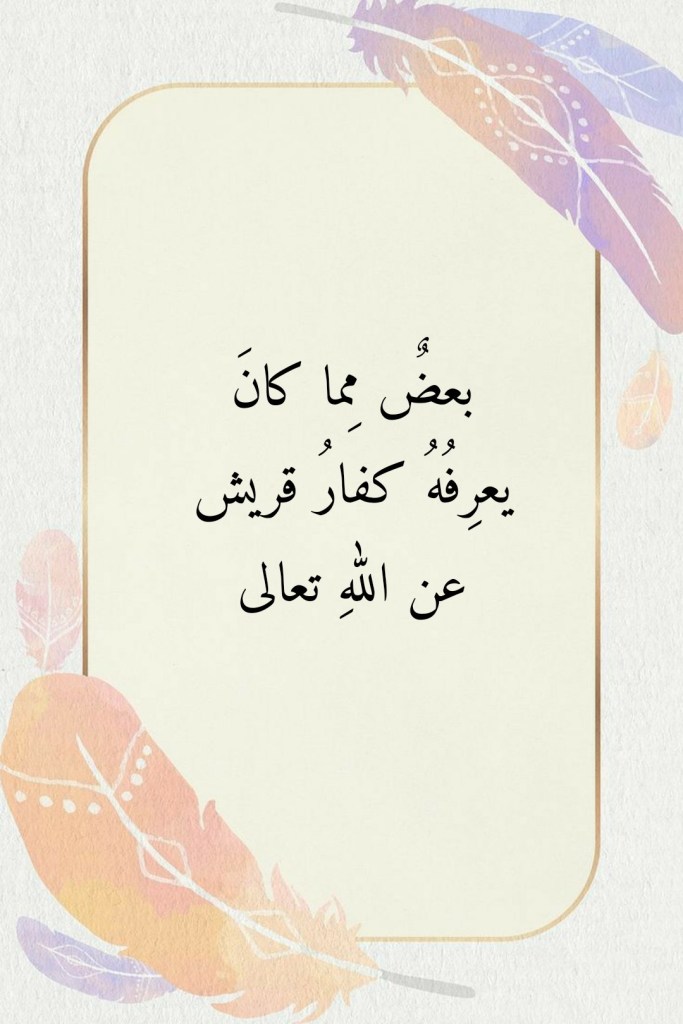 بعضٌ مِما كانَ
يعرِفُهُ كفارُ قريش
عن اللهِ تعالى